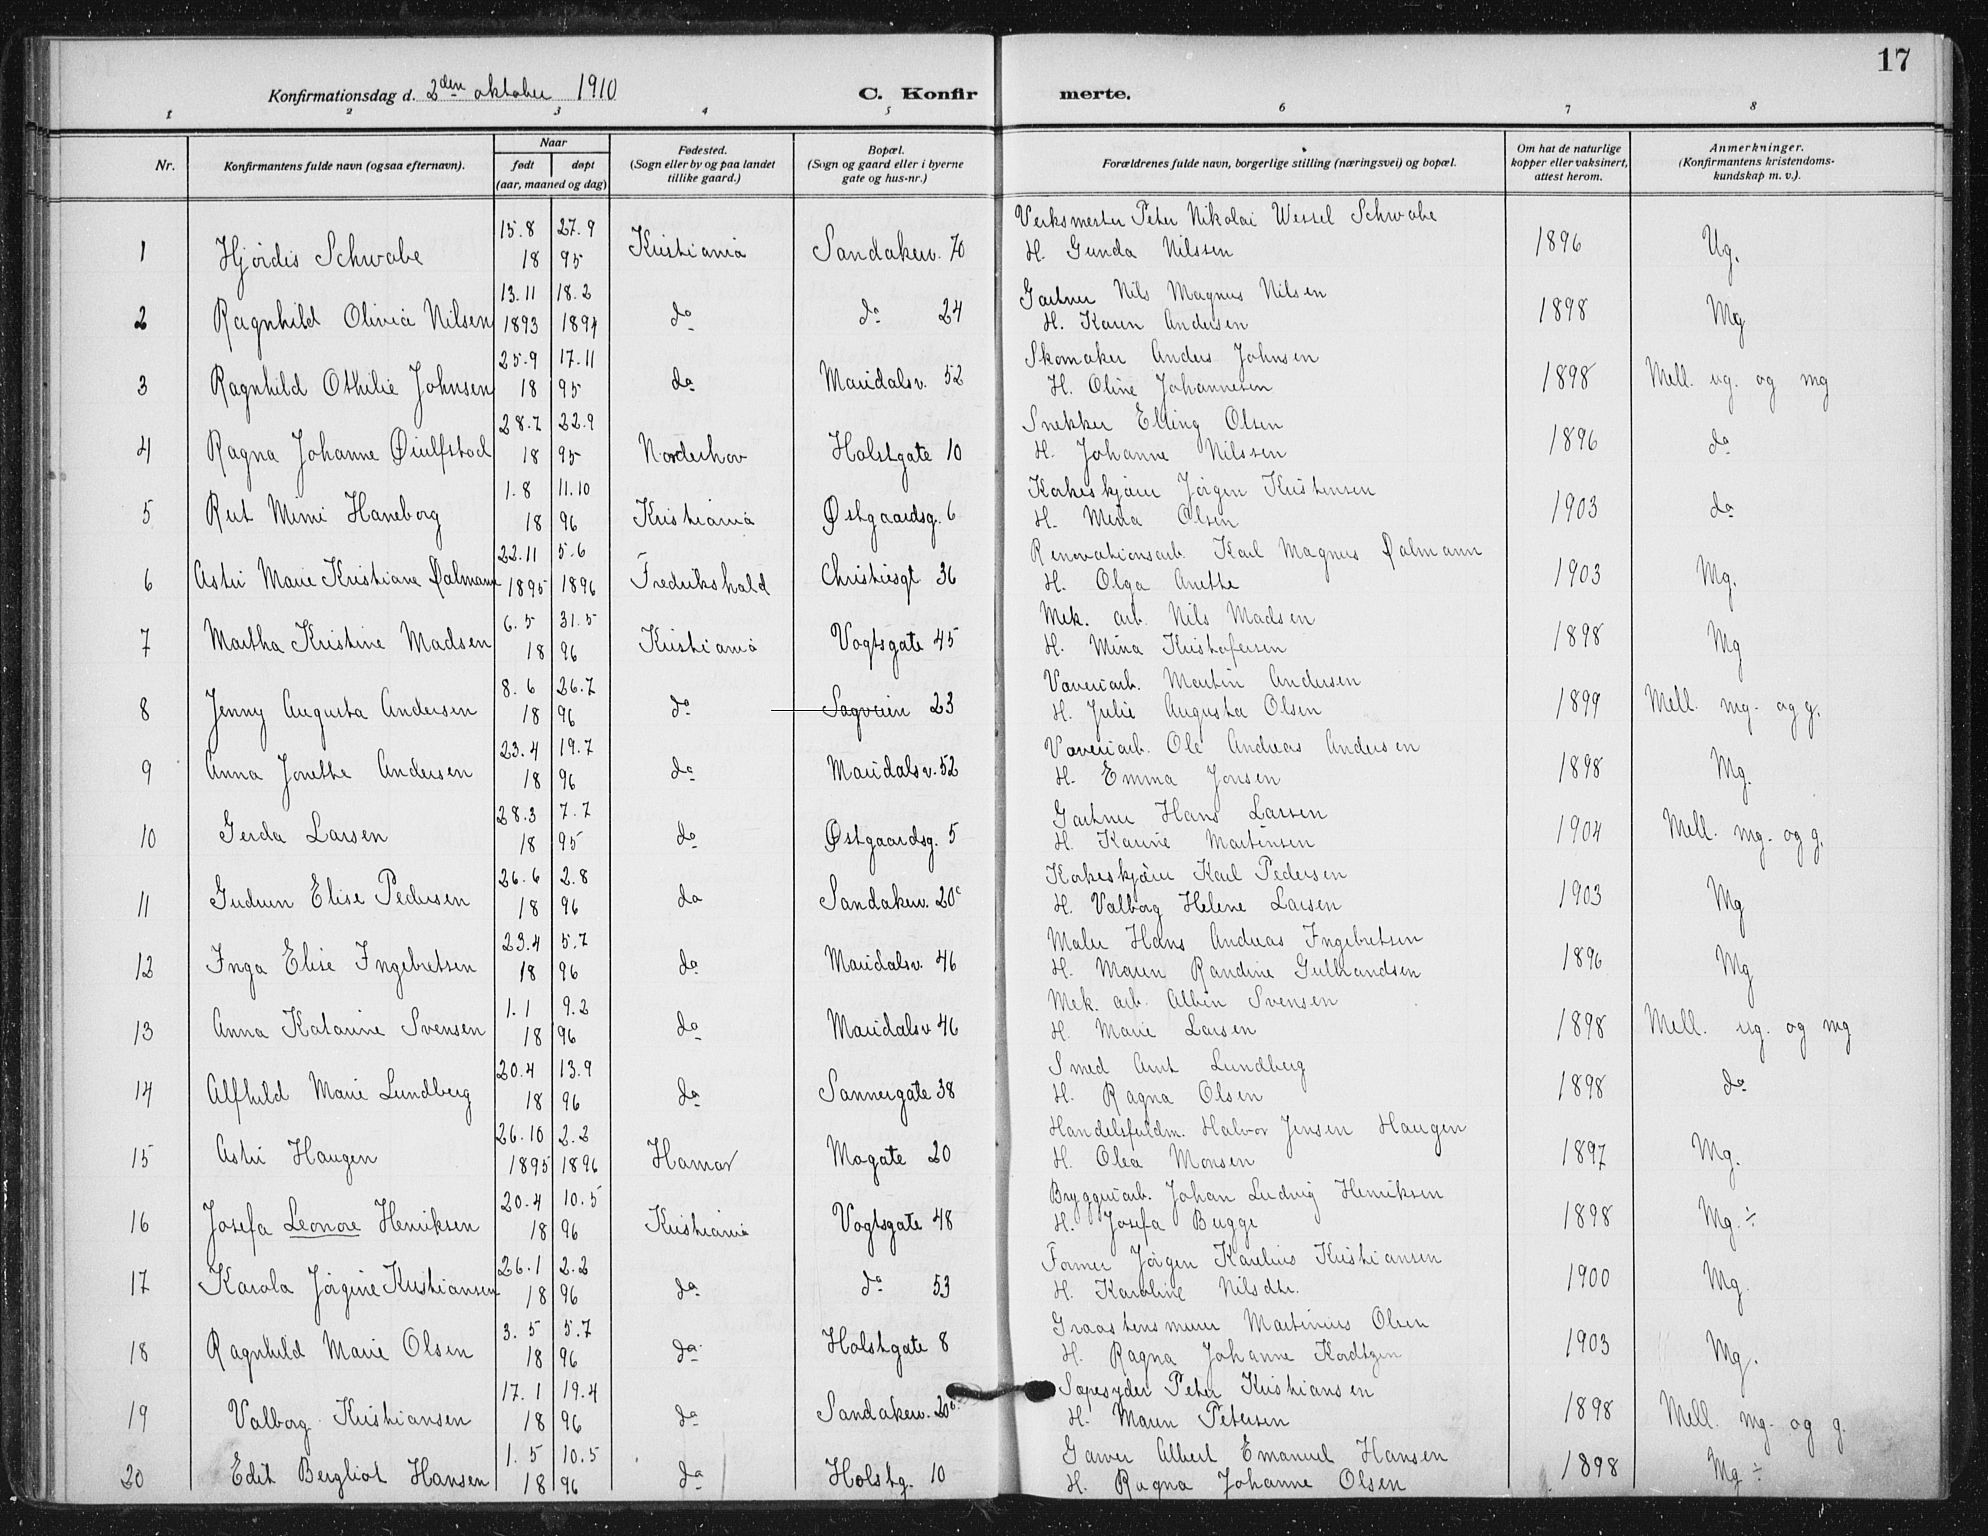 17
Konfirmationsdag d. 2den oktober 1910 C. Konfirmerte.
1 2 3 4 5 6 7 8
Nr. Konfirmantens fulde navn (ogsaa efternavn). Naar født døpt (aar, maaned og dag) Fødested. (Sogn eller by og paa landet tillike gaard.) Bopæl. (Sogn og gaard eller i byerne gate og hus-nr.) Forældrenes fulde navn, borgerlige stilling (næringsvei) og bopæl. Om hat de naturlige kopper eller vaksinert, attest herom. Anmerkninger. (Konfirmantens kristendoms-kundskap m. v.).
15.8 27.9 Verksmester Peter Nikolai Wessel Schwabe
1 Hjørdis Schwabe 18 95 Kristiania Sandakerv. 70 H. Gunda Nilssen 1896 Ug.
13.11 18.2 Gartner Nils Magnus Nilsen
2 Ragnhild Olivia Nilsen 1893 1894 do do 24 H. Karen Andersen 1898 Mg
25.9 17.11 Skomaker Anders Johnsen
3 Ragnhild Othilie Johnsen 18 95 do Maridalsv. 52 H. Oline Johannesen 1898 Mell. ug. og mg
28.7 22.9 Snekker Elling Olsen
4 Ragna Johanne Øiulfstad 18 95 Norderhov Holstgate 10 H. Johanne Nilssen 1896 do
1.8 11.10 Korkeskjærer Jørgen Kristensen
5 Rut Mimi Haneborg 18 96 Kristiania Østgaardsg. 6 H. Mina Olsen 1903 do
22.11 5.6 Renovationsarb. Karl Magnus Dalmann
6 Astri Marie Kristiane Dalmann 1895 1896 Fredrikshald Christiesgt 36 H. Olga Anethe 1903 Mg.
6.5 31.5 Mek. arb. Nils Madsen
7 Martha Kristine Madsen 18 96 Kristiania Vogtsgate 45 H. Mina Kristofersen 1898 Mg
8.6 26.7 Væveriarb. Martin Andersen
8 Jenny Augusta Andersen 18 96 do Sagveien 23 H. Julie Augusta Olsen 1899 Mell. mg. og g.
23.4 19.7 Væveriarb. Ole Andreas Andersen
9 Anna Jonethe Andersen 18 96 do Maridalsv. 52 H. Emma Jonsen 1898 Mg.
28.3 7.7 Gartner Hans Larsen
10 Gerda Larsen 18 95 do Østgaardsg. 5 H. Karine Martinsen 1904 Mell. mg. og g.
26.6 2.8 Korkeskjærer Karl Pedersen
11 Gudrun Elise Pedersen 18 96 do Sandakerv. 20c H. Valborg Helene Larsen 1903 Mg
23.4 5.7 Maler Hans Andreas Ingebretsen
12 Inga Elise Ingebretsen 18 96 do Maridalsv. 46 H. Maren Randine Gulbrandsen 1896 Mg
1.1 9.2 Mek. arb. Albin Svensen
13 Anna Katarine Svensen 18 96 do Maridalsv 46 H. Marie Larsen 1898 Mell. ug. og mg
20.4 13.9 Smed Arnt Lundberg
14 Alfhild Marie Lundberg 18 96 do Sannergate 38 H. Ragna Olsen 1898 do
26.10 2.2 Handelsfuldm. Halvor Jensen Haugen
15 Astri Haugen 1895 1896 Hamar Mogate 20 H. Olea Monsen 1897 Mg.
20.4 10.5 Bryggeriarb. Johan Ludvig Henriksen
16 Josefa Leonore Henriksen 18 96 Kristiania Vogtsgate 48 H. Josefa Bugge 1898 Mg. ÷
26.1 2.2 Former Jørgen Karelius Kristiansen
17 Karola Jørgine Kristiansen 18 96 do do 53 H. Karoline Nilsdtr. 1900 Mg.
3.5 5.7 Graastensmurer Martinius Olsen
18 Ragnhild Marie Olsen 18 96 do Holstgate 8 H. Ragna Johanne 1903 Mg.
17.1 19.4 Sæpesyder Peter Kristiansen
19 Valborg Kristiansen 18 96 do Sandakerv. H. Maren Petersen 1898 Mell. mg. og g.
1.5 10.5 Garver Albert Emanuel Hansen
20 Edit Bergliot Hansen 18 96 do Holstg. 10 H. Ragna Johanne Olsen 1898 Mg ÷